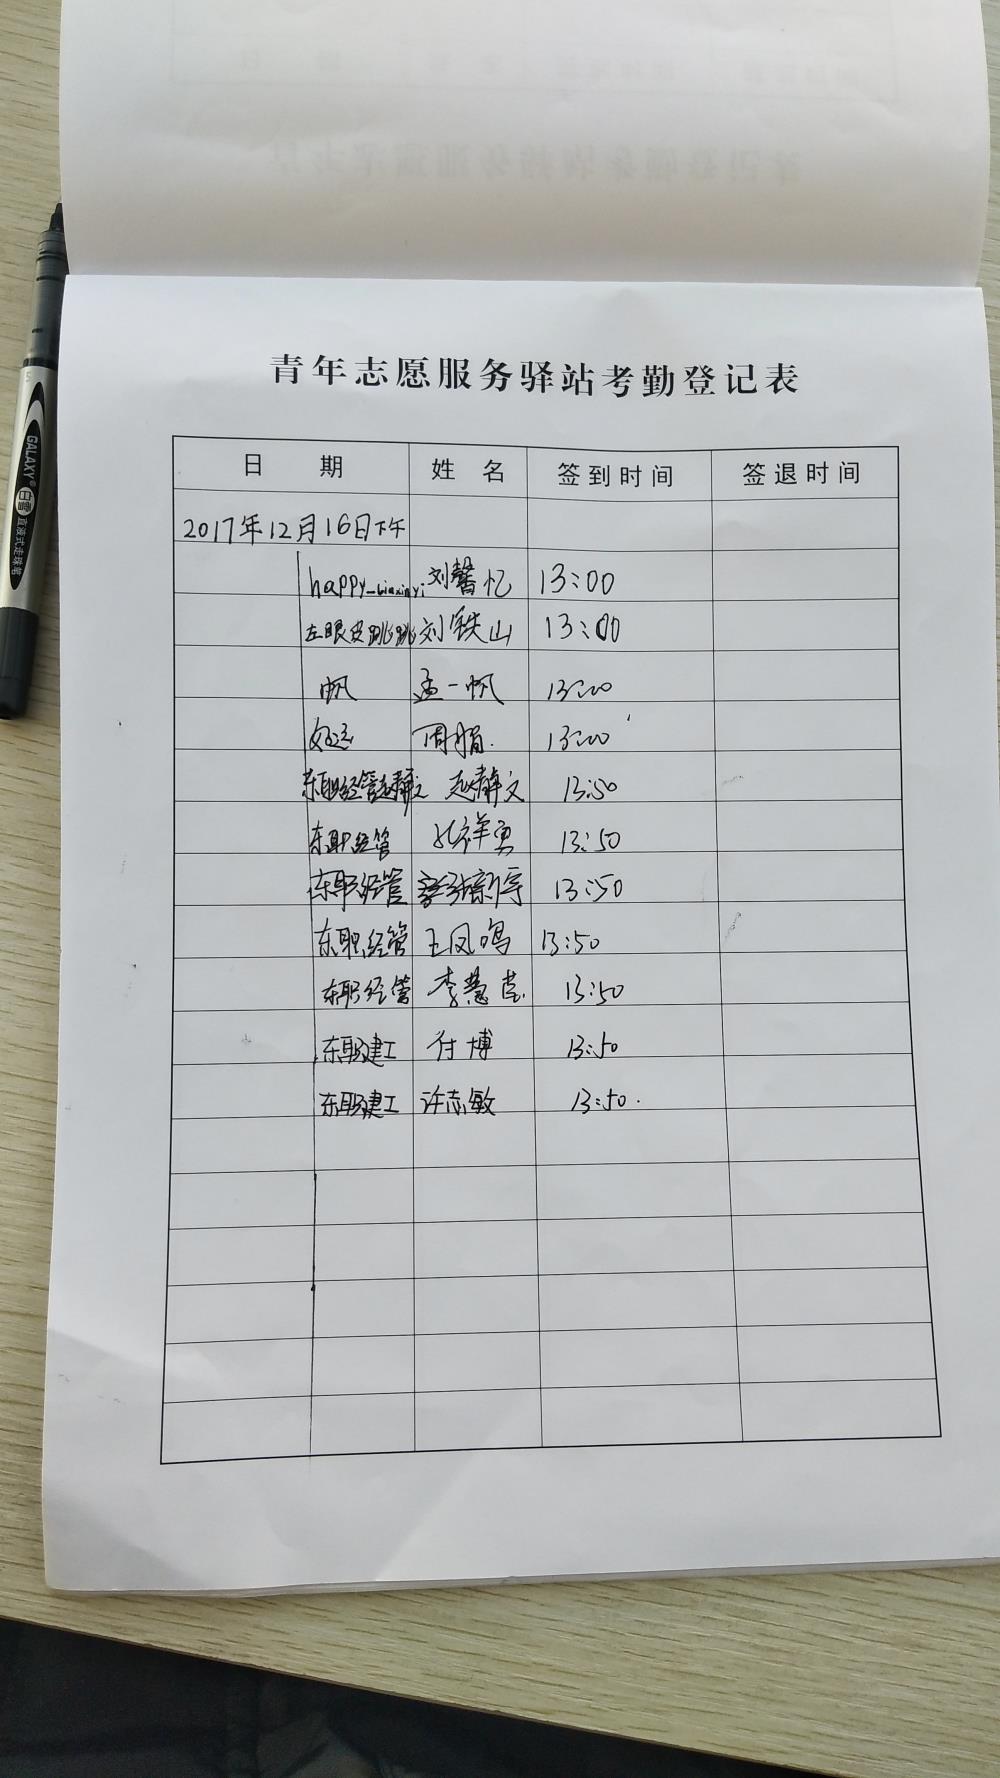 青年志愿服务驿站考勤登记表
日 期 姓 名 签到时间 签退时间
2017年12月16日下午
happy_liuxinyi 刘馨忆 13:00
左眼皮跳跳 刘铁山 13:00
帆 孟一帆 13:00
好运 周娟 13:00
东职经管赵静文 赵静文 13:50
东职经管 祥勇 13:50
东职经管 张新宇 13:50
东职经管 王凤鸣 13:50
东职经管 李慧莹 13:50
东职建工 付博 13:50
东职建工 许志敏 13:50
GALAXY 白雪 直液式走珠笔